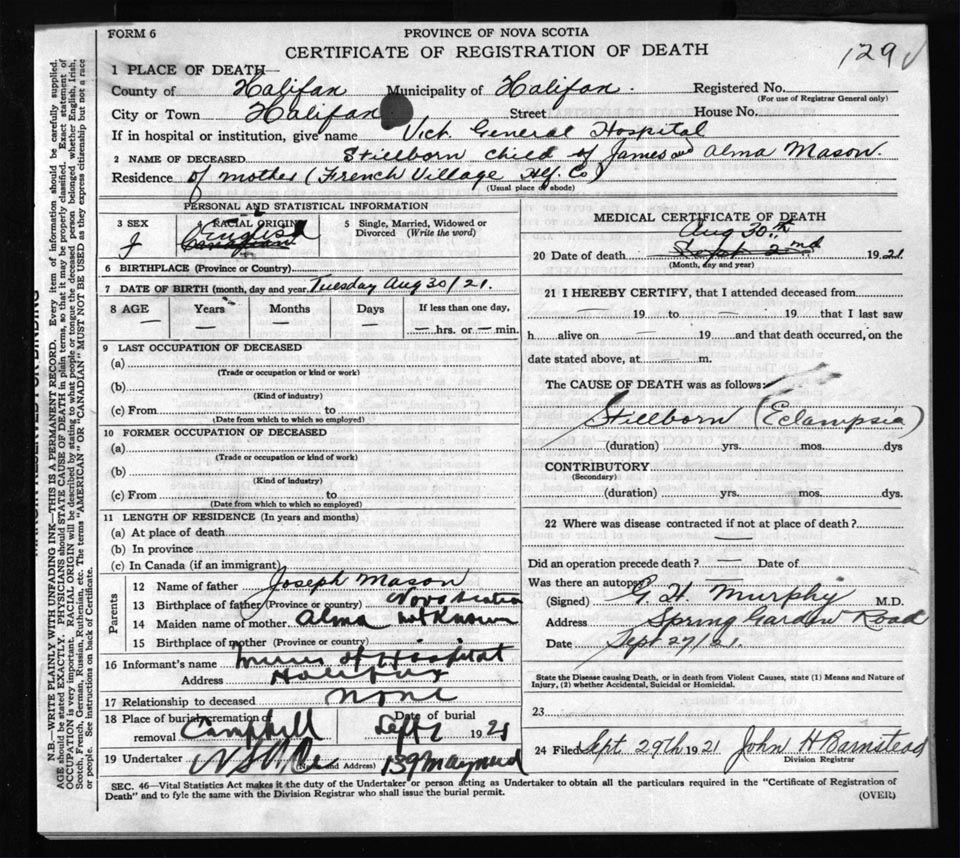 FORM 6
PROVINCE OF NOVA SCOTIA
CERTIFICATE OF REGISTRATION OF DEATH
129
1 PLACE OF DEATH—
County of Halifax Municipality of Halifax. Registered No.
(For use of Registrar General only)
City or Town Halifax Street House No.
If in hospital or institution, give name Vict. General Hospital
2 NAME OF DECEASED Stillborn child of James and Alma Mason.
Residence of mother (French Village Hfx. Co)
(Usual place of abode)
PERSONAL AND STATISTICAL INFORMATION
3 SEX 4 RACIAL ORIGIN 5 Single, Married, Widowed or Divorced (Write the word)
f English Canadian
6 BIRTHPLACE (Province or Country)
7 DATE OF BIRTH (month, day and year) Tuesday Aug 30/21.
8 AGE Years Months Days If less than one day,
— — — — —hrs. or —min.
9 LAST OCCUPATION OF DECEASED
(a)
(Trade or occupation or kind or work)
(b)
(Kind of industry)
(c) From to
(Date from which to which so employed)
10 FORMER OCCUPATION OF DECEASED
(a)
(Trade or occupation or kind of work)
(b)
(Kind of industry)
(c) From to
(Date from which to which so employed)
11 LENGTH OF RESIDENCE (In years and months)
(a) At place of death
(b) In province
(c) In Canada (if an immigrant)
Parents
12 Name of father Joseph Mason
13 Birthplace of father (Province or country) Nova Scotia
14 Maiden name of mother Alma not Known
15 Birthplace of mother (Province or country)
16 Informant's name of Hospital
Address Halifax
17 Relationship to deceased none
18 Place of burial, cremation or removal Campbell Date of burial Sept 2 1921
19 Undertaker (Name and Address) 139 Maynard
MEDICAL CERTIFICATE OF DEATH
Aug 30th
20 Date of death Sept 2nd 1921
(Month, day and year)
21 I HEREBY CERTIFY, that I attended deceased from
— 19 to — 19 that I last saw
h alive on — 19 and that death occurred, on the
date stated above, at — m.
The CAUSE OF DEATH was as follows:
Stillborn (Eclampsia)
(duration) yrs. mos. dys
CONTRIBUTORY
(Secondary)
(duration) yrs. mos. dys.
22 Where was disease contracted if not at place of death?
—
Did an operation precede death? — Date of
Was there an autopsy
(Signed) G. H. Murphy M.D.
Address Spring Garden Road
Date Sept 27/21.
State the Disease causing Death, or in death from Violent Causes, state (1) Means and Nature of
Injury, (2) whether Accidental, Suicidal or Homicidal.
23
24 Filed Sept. 29th 1921 John H Barnstead
Division Registrar
SEC. 46—Vital Statistics Act makes it the duty of the Undertaker or person acting as Undertaker to obtain all the particulars required in the "Certificate of Registration of
Death" and to fyle the same with the Division Registrar who shall issue the burial permit.
(OVER)
N.B.—WRITE PLAINLY WITH UNFADING INK—THIS IS A PERMANENT RECORD. Every item of information should be carefully supplied.
AGE should be stated EXACTLY. PHYSICIANS should STATE CAUSE OF DEATH in plain terms, so that it may be properly classified. Exact statement of
OCCUPATION is very important. RACIAL ORIGIN will be described by stating to what people or tongue the deceased person belonged whether English, Irish,
Scotch, French, German, Russian, Ruthenian, etc. The terms "AMERICAN" OR "CANADIAN" MUST NOT BE USED as they express citizenship but not a race
or people. See instructions on back of Certificate.